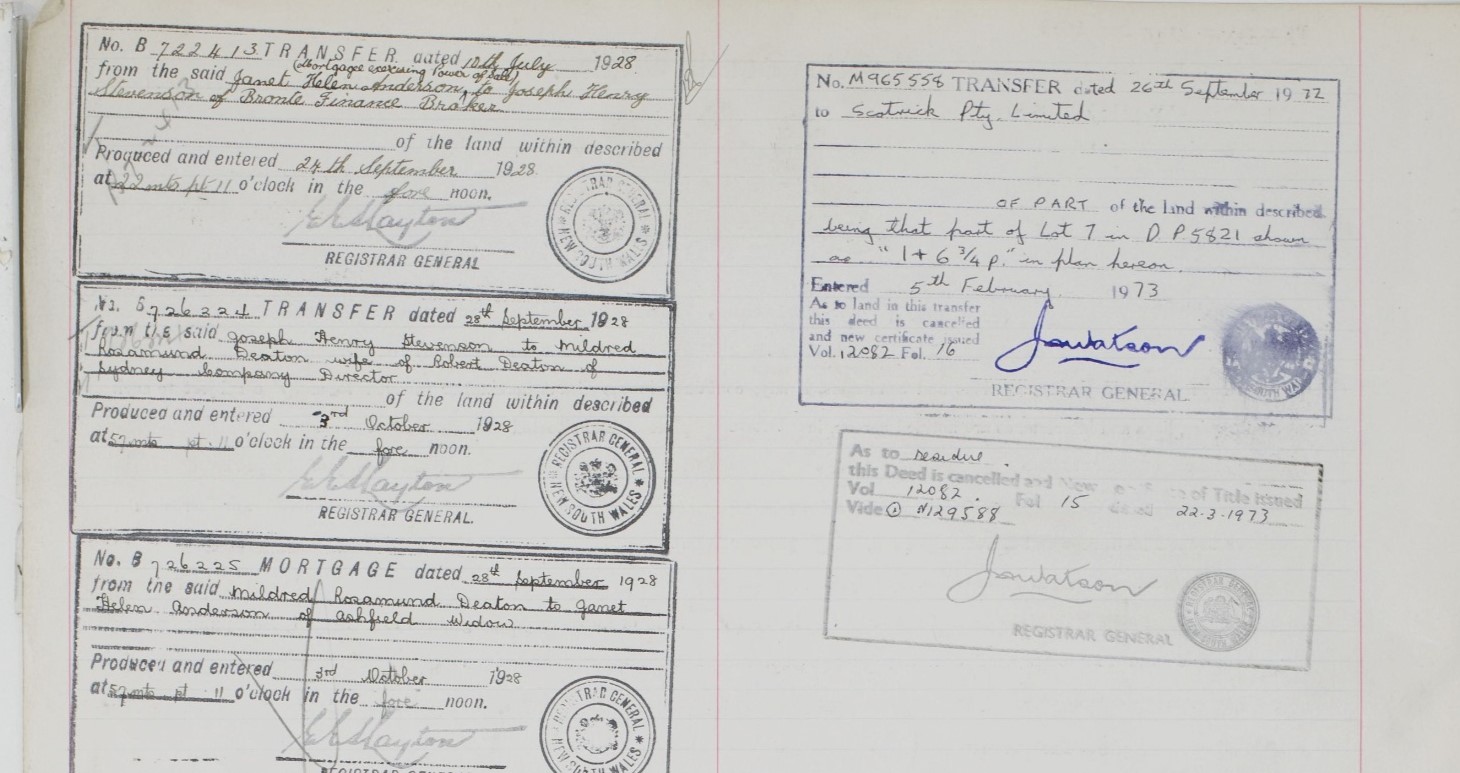 No. B 722413 TRANSFER dated 10th July 1928
(Mortgagee exercising Power of Sale)
from the said Janet Helen Anderson, to Joseph Henry
Stevenson of Bronte Finance Broker
of the land within described
Produced and entered 24th September 1928
at 22 mts pt 11 o'clock in the fore noon.
REGISTRAR GENERAL
REGISTRAR GENERAL NEW SOUTH WALES
No. B 726224 TRANSFER dated 28th September 1928
from the said Joseph Henry Stevenson to Mildred
Rosamund Deaton wife of Robert Deaton of
Sydney Company Director
of the land within described
Produced and entered 3rd October 1928
at 57 mts pt 11 o'clock in the fore noon.
REGISTRAR GENERAL.
REGISTRAR GENERAL NEW SOUTH WALES
No. B 726225 MORTGAGE dated 28th September 1928
from the said Mildred Rosamund Deaton to Janet
Helen Anderson of Ashfield Widow
Produced and entered 3rd October 1928
at 57 mts pt 11 o'clock in the fore noon.
REGISTRAR GENERAL
No. M965558 TRANSFER dated 26th September 1972
to Scotrick Pty. Limited
OF PART of the land within described
being that part of Lot 7 in D P 5821 shown
as "1+ 6 3/4 p." in plan hereon.
Entered 5th February 1973
As to land in this transfer
this deed is cancelled
and new certificate issued
Vol. 12082 Fol. 16
Jawatson
REGISTRAR GENERAL
As to residue
this Deed is cancelled and New of Title issued
Vol 12082. Fol 15 22-3-1973
Vide ① N129588
Jawatson
REGISTRAR GENERAL